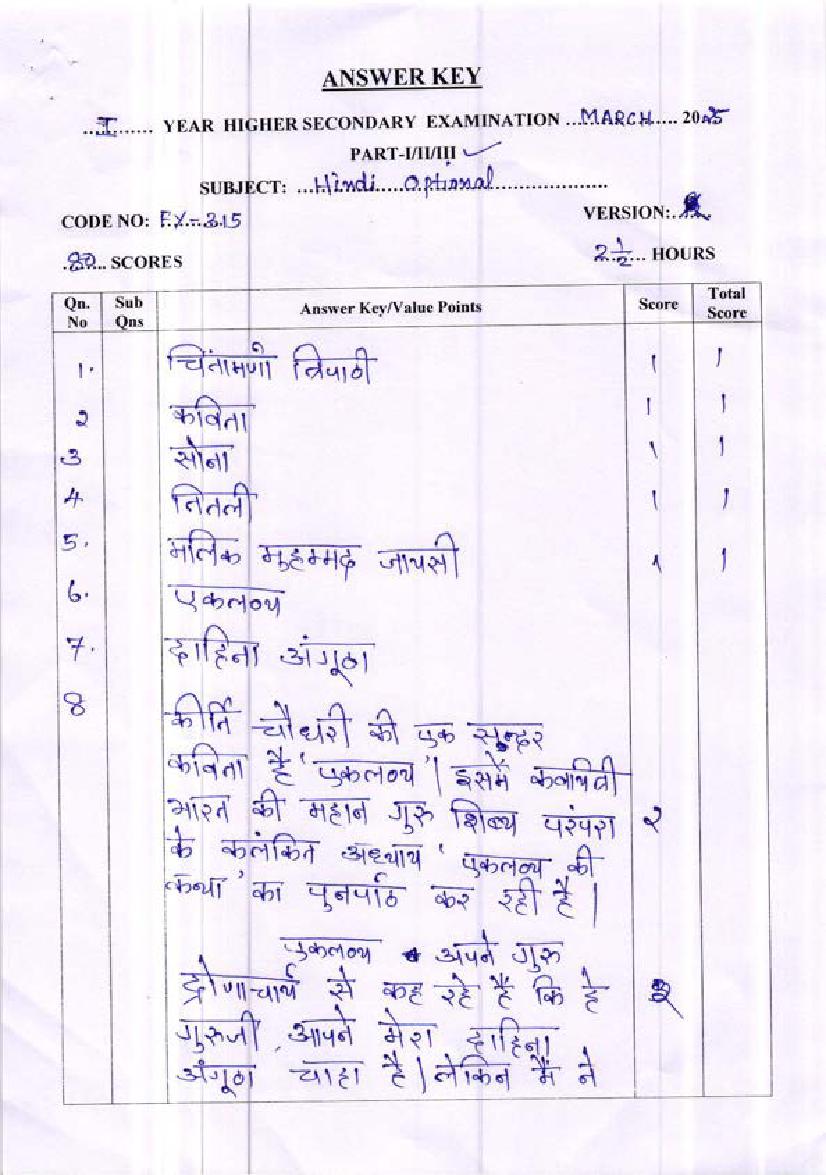 ANSWER KEY
....I....... YEAR HIGHER SECONDARY EXAMINATION ...MARCH..... 2025
PART-I/II/III
SUBJECT: ...Hindi.....Optional......................
CODE NO: F.Y-315
VERSION:..
.80... SCORES
2 1/2... HOURS
Qn. No Sub Qns Answer Key/Value Points Score Total Score
1. चिंतामणी त्रिपाठी 1 1
2 कविता 1 1
3 सोना 1 1
4 तितली 1 1
5. मलिक मुहम्मद जायसी 1 1
6. एकलव्य
7. दाहिना अंगूठा
8 कीर्ति चौधरी की एक सुन्दर
कविता है 'एकलव्य'| इसमें कवयित्री
भारत की महान गुरु शिष्य परंपरा २
के कलंकित अध्याय 'एकलव्य की
कथा' का पुनर्पाठ कर रही है|
एकलव्य अपने गुरु
द्रोणाचार्य से कह रहे हैं कि हे
गुरुजी, आपने मेरा दाहिना
अंगूठा चाहा है|लेकिन मैं ने